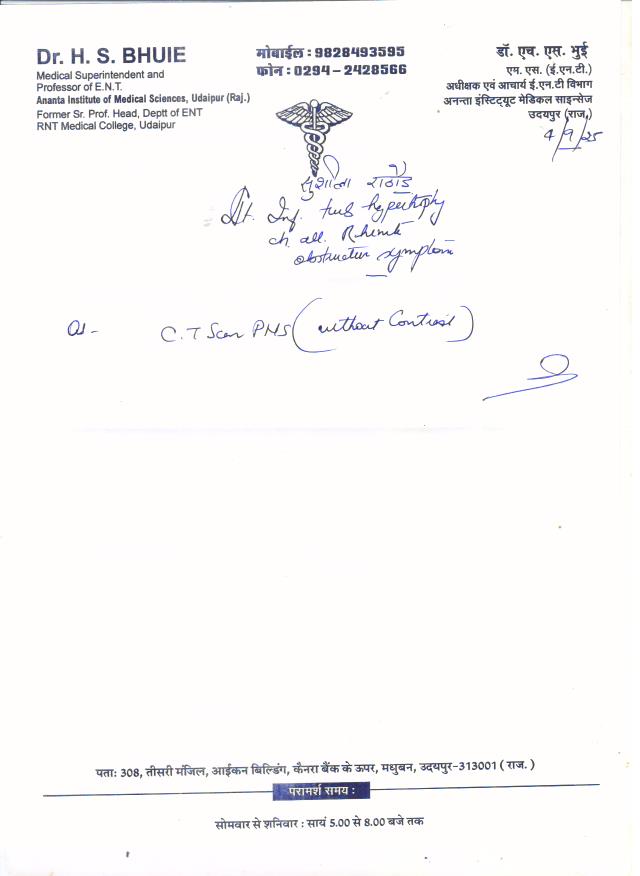 Dr. H. S. BHUIE
Medical Superintendent and
Professor of E.N.T.
Ananta Institute of Medical Sciences, Udaipur (Raj.)
Former Sr. Prof. Head, Deptt of ENT
RNT Medical College, Udaipur
मोबाईल : 9828493595
फोन : 0294 – 2428566
डॉ. एच. एस. भुई
एम. एस. (ई.एन.टी.)
अधीक्षक एवं आचार्य ई.एन.टी विभाग
अनन्ता इंस्टिट्यूट मेडिकल साइन्सेज
उदयपुर (राज.)
4/9/25
सुशीला राठौड
Inf. turb hypertrophy
ch. all.
obstructive symptom
C.T Scan PNS (without Contrast)
पताः 308, तीसरी मंजिल, आईकन बिल्डिंग, कैनरा बैंक के ऊपर, मधुबन, उदयपुर-313001 ( राज. )
परामर्श समय :
सोमवार से शनिवार : सायं 5.00 से 8.00 बजे तक